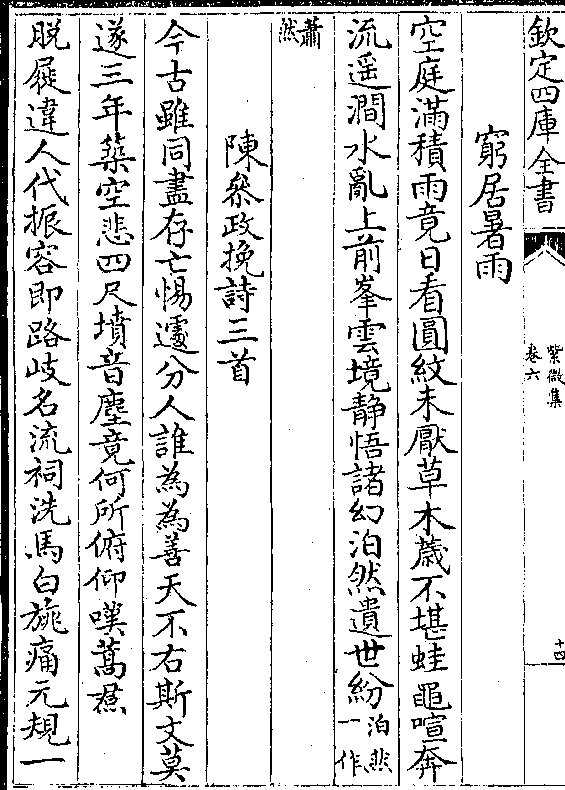 欽定四庫全書
紫微集
卷六
十四
窮居暑雨
空庭滿積雨竟日看圓紋未厭草木薉不堪蛙黽喧奔
流遥澗水亂上前峯雲境静悟諸幻泊然遺世紛泊然一作
蕭然
陳叅政挽詩三首
今古雖同盡存亡惕遽分人誰為為善天不右斯文莫
遂三年築空悲四尺墳音塵竟何所俯仰嘆蒿焄
脱屣違人代振容即路岐名流祠洗馬白旐痛元規一